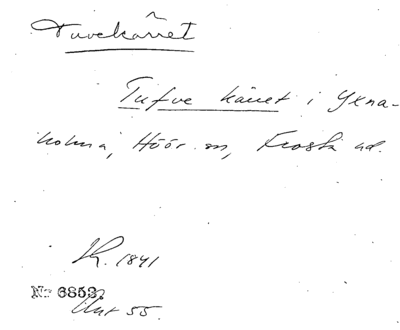 Tuvekärret
Tufve käret i Yxna-
holma, Höör sn, Frosta hd.
LK. 1841
No 6853.
Akt 55.